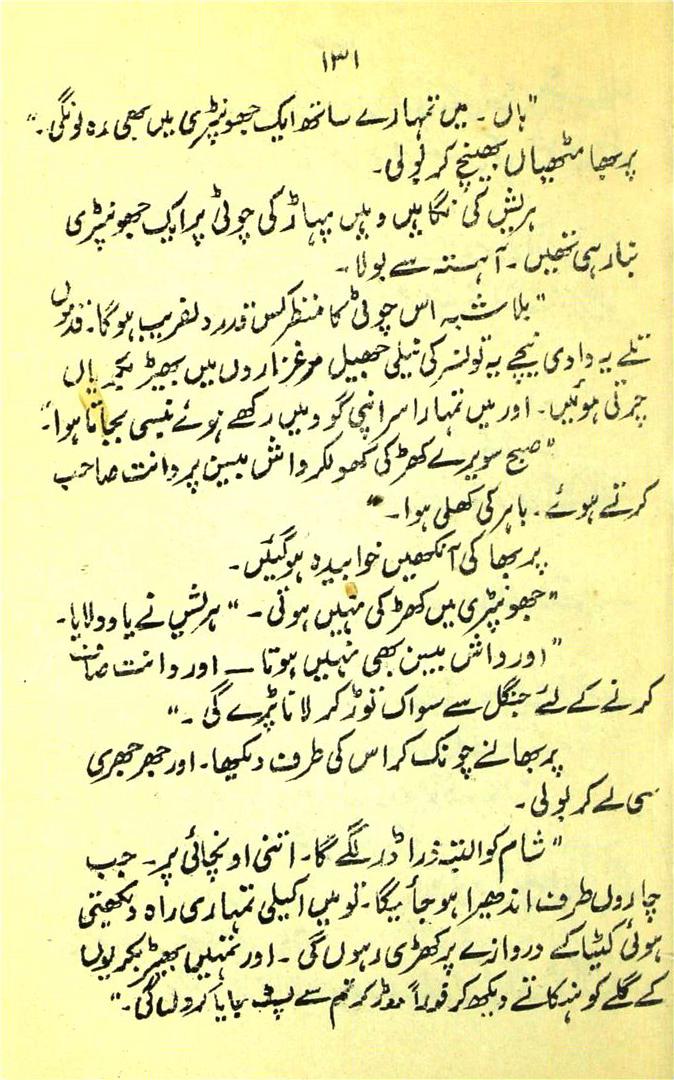 ۱۳۱
"ہاں ۔ میں تمہارے ساتھ ایک جھونپڑی میں بھی رہ لونگی۔"
پربھا مٹھیاں بھینچ کر بولی۔
ہریش کی نگاہیں وہیں پہاڑ کی چوٹی پر ایک جھونپڑی
بنا رہی تھیں ۔ آہستہ سے بولا۔
"بلاشبہ اس چوٹی کا منظر کس قدر دلفریب ہوگا۔ قدموں
تلے یہ وادی نیچے یہ تولسر کی نیلی جھیل مرغزاروں میں بھیڑ بکریاں
چرتی ہوئیں۔ اور میں تمہارا سر اپنی گود میں رکھے ہوئے بنسی بجاتا ہوا۔"
"صبح سویرے کھڑکی کھولکر واش بیسن پر دانت صاحب
کرتے ہوئے ۔ باہر کی کھلی ہوا۔"
پربھا کی آنکھیں خوابیدہ ہوگئیں۔
"جھونپڑی میں کھڑکی نہیں ہوتی ۔" ہریش نے یاد دلایا۔
"اور واش بیسن بھی نہیں ہوتا ـــ اور دانت صاف
کرنے کے لئے جنگل سے مسواک توڑ کر لانا پڑے گی ۔"
پربھا نے چونک کر اس کی طرف دیکھا۔ اور جھرجھری
سی لے کر بولی ۔
"شام کو البتہ ذرا ڈر لگے گا۔ اتنی اونچائی پر ۔ جب
چاروں طرف اندھیرا ہو جائیگا۔ تو میں اکیلی تمہاری راہ دیکھتی
ہوئی کٹیا کے دروازے پر کھڑی رہوں گی ۔ اور تمہیں بھیڑ بکریوں
کے گلے کو ہنکاتے دیکھ کر فوراً دوڑ کر تم سے لپٹ جایا کروں گی ۔"